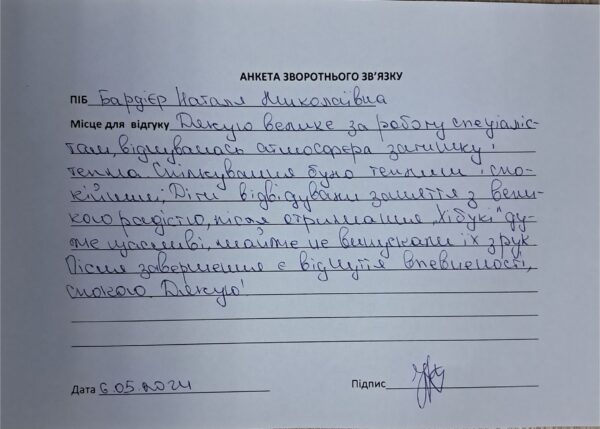 АНКЕТА ЗВОРОТНЬОГО ЗВ'ЯЗКУ
ПІБ Бардієр Наталя Миколаївна
Місце для відгуку Дякую велике за роботу спеціаліс-
там, відчувалась атмосфера затишку і
тепла. Спілкування було теплими і спо-
кійними; Діти відвідували заняття з вели-
кою радістю, після отримання „Хібукі" ду-
же щасливі, майже не випускали їх з рук
Після завершення є відчуття впевненості,
спокою. Дякую!
Дата 6.05.2024
Підпис